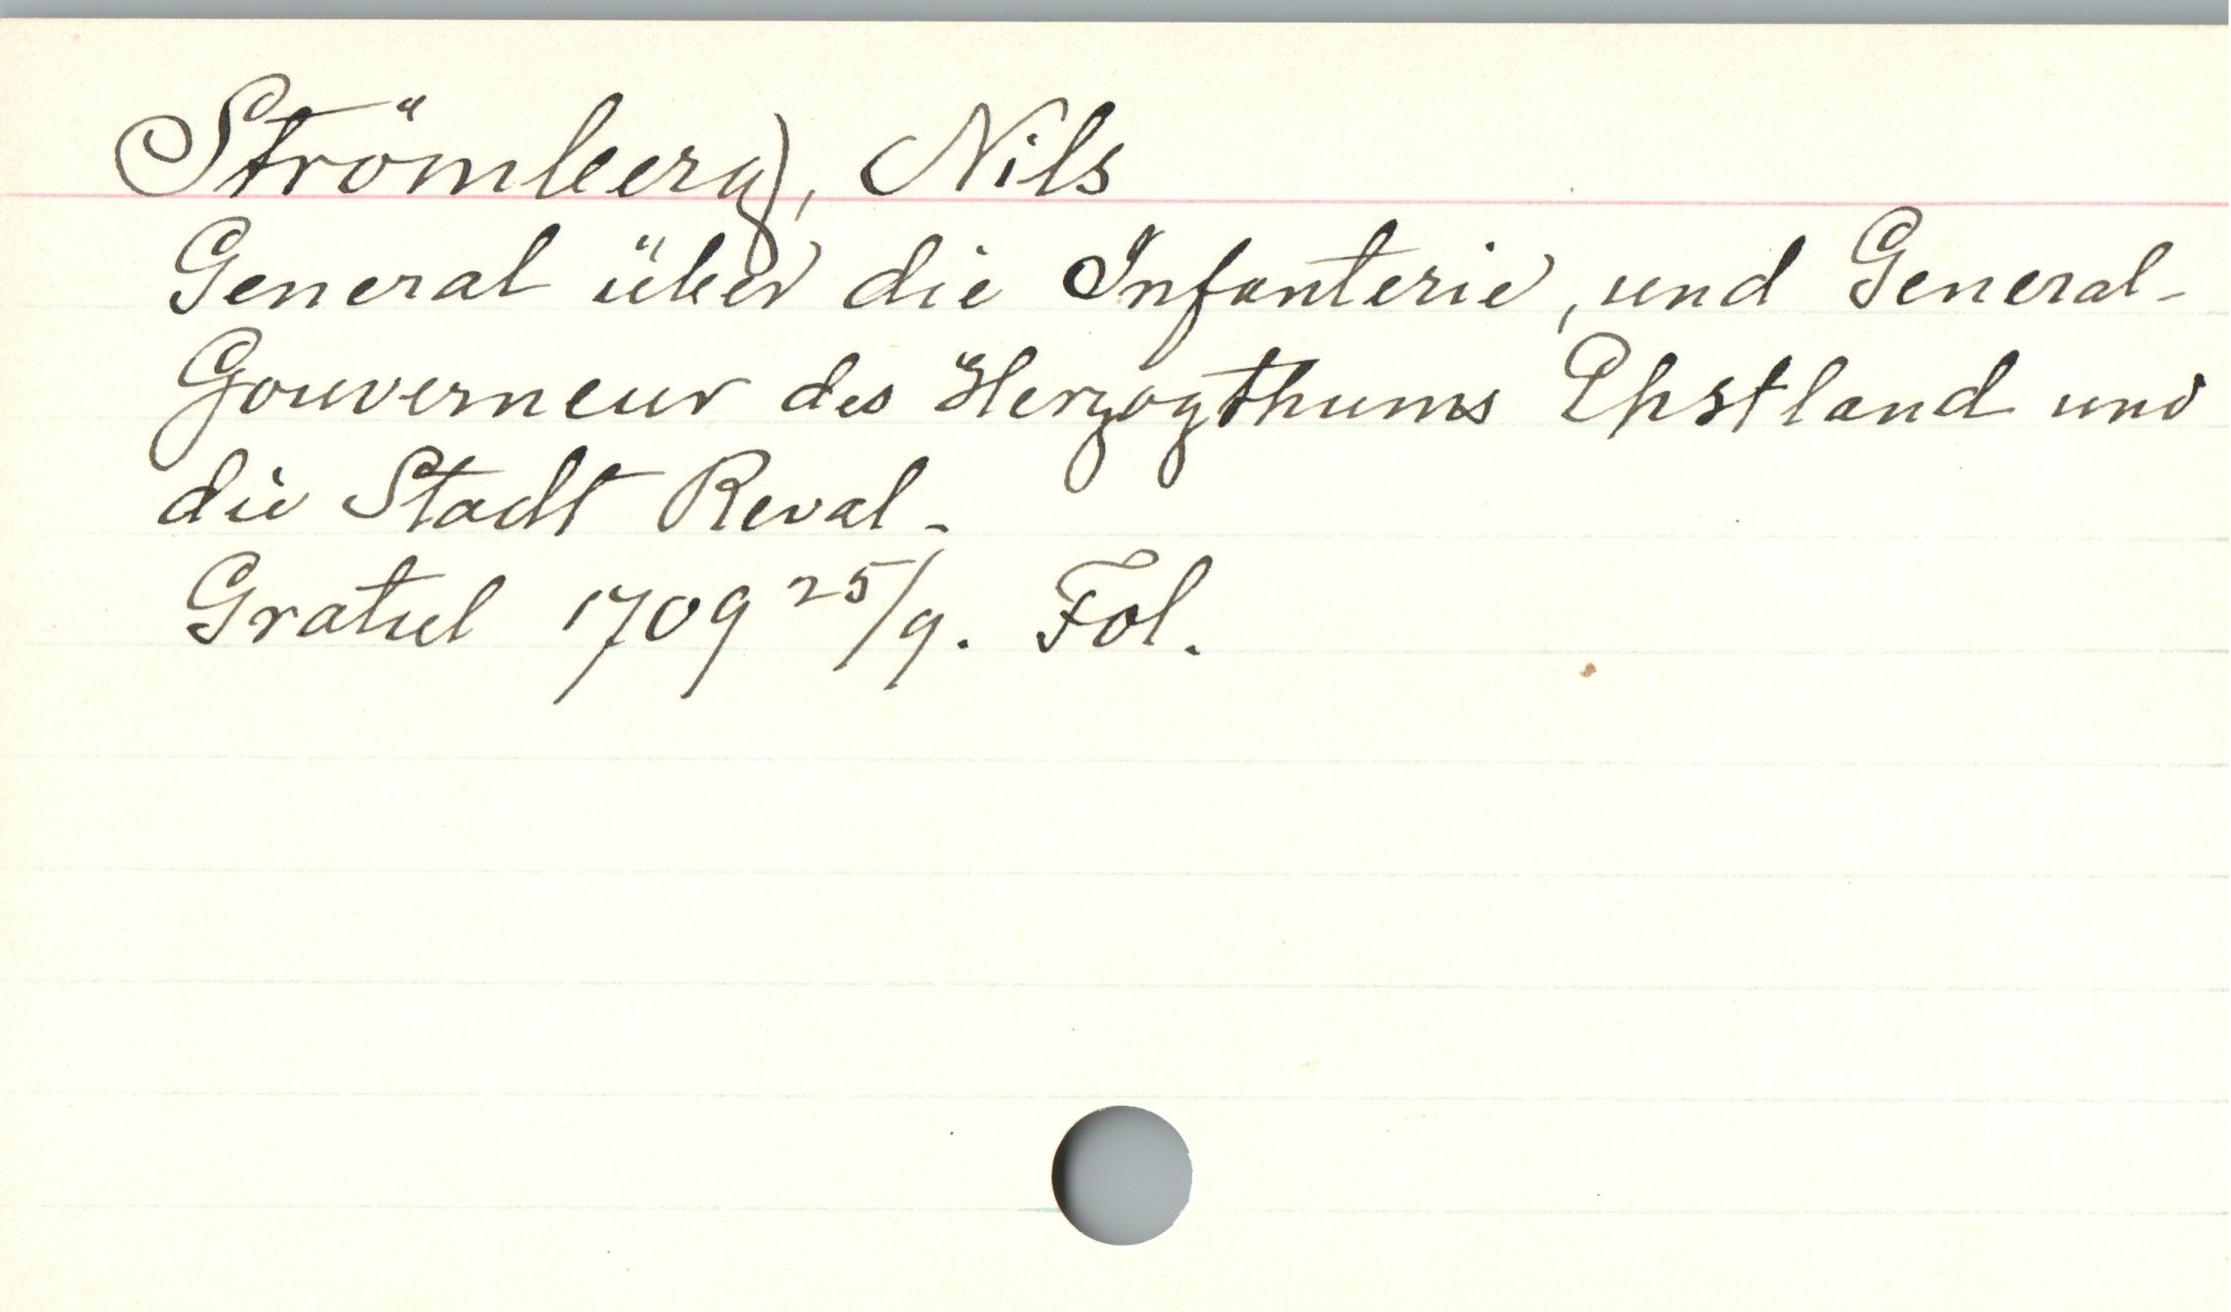 Strömberg, Nils
General über die Infanterie, und General-
Gouverneur des Herzogthums Ehstland und
die Stadt Reval.
Gratul 1709 25/9. Fol.